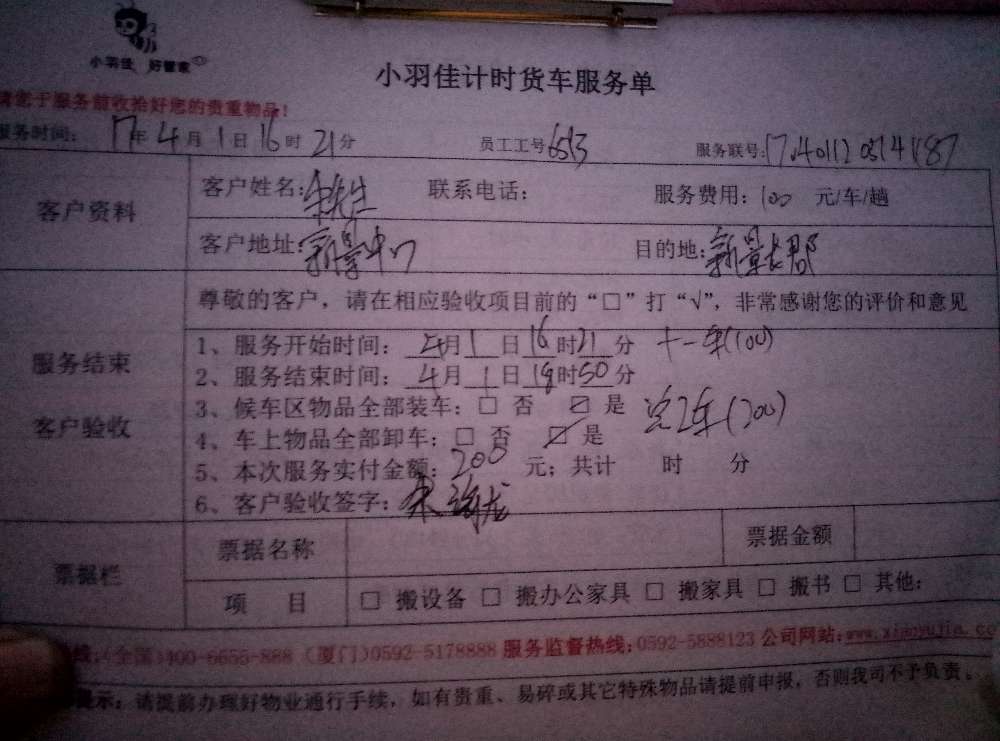 小羽佳 好管家
小羽佳计时货车服务单
请您于服务前收拾好您的贵重物品！
服务时间： 17年4月1日16时21分 员工工号6513 服务联号：
客户资料
客户姓名：宋先生 联系电话： 服务费用：100 元/车/趟
客户地址：新景中心 目的地：新景长郡
尊敬的客户，请在相应验收项目前的“□”打“√”，非常感谢您的评价和意见
服务结束
客户验收
1、服务开始时间： 4月1日16时21分 十一车(100)
2、服务结束时间： 4月1日18时50分
3、候车区物品全部装车：□ 否 ☑ 是 总2车(200)
4、车上物品全部卸车：□ 否 ☑ 是
5、本次服务实付金额：200 元；共计 时 分
6、客户验收签字：宋
票据栏
票据名称 票据金额
项 目 □ 搬设备 □ 搬办公家具 □ 搬家具 □ 搬书 □ 其他：
线：(全国)400-6655-888 (厦门)0592-5178888 服务监督热线：0592-5888123 公司网站：www.xiaoyujia.co
提示：请提前办理好物业通行手续，如有贵重、易碎或其它特殊物品请提前申报，否则我司不予负责。